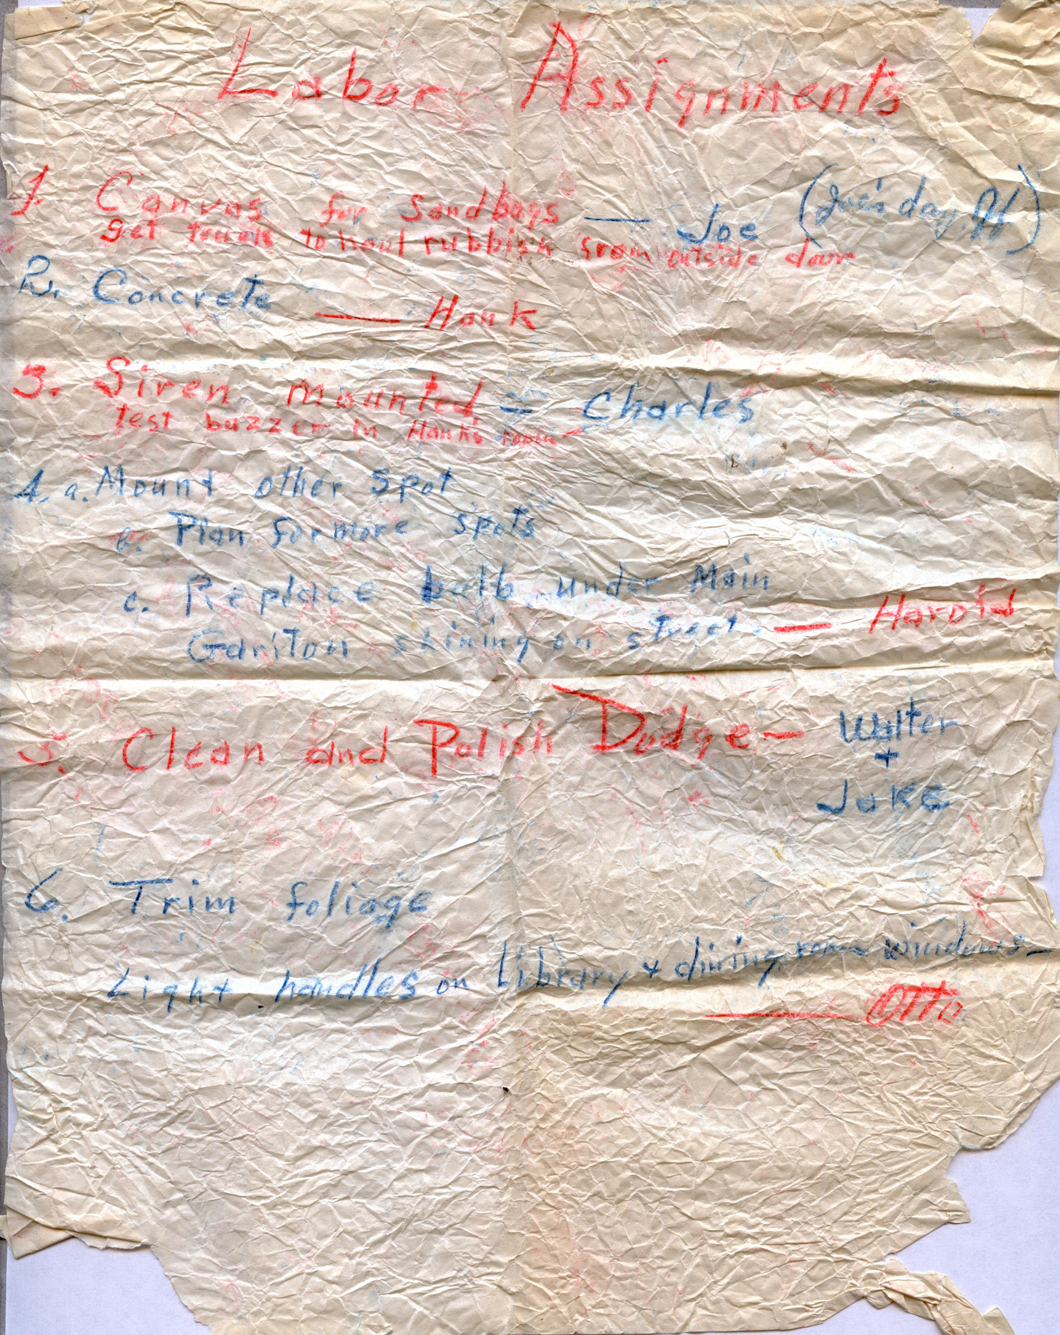 Labor Assignments
1. Canvas for Sandbags — Joe (Joe's day off)
Get to haul rubbish from outside door
2. Concrete — Hank
3. Siren Mounted = Charles
Test buzzer in Hank's room
4. a. Mount other Spot
b. Plan for more Spots
c. Replace bulb under Main
Gariton shining on street. — Harold
5. Clean and Polish Dodge — Walter
+
Jake
6. Trim foliage
Light handles on Library + dining room windows —
— Otto